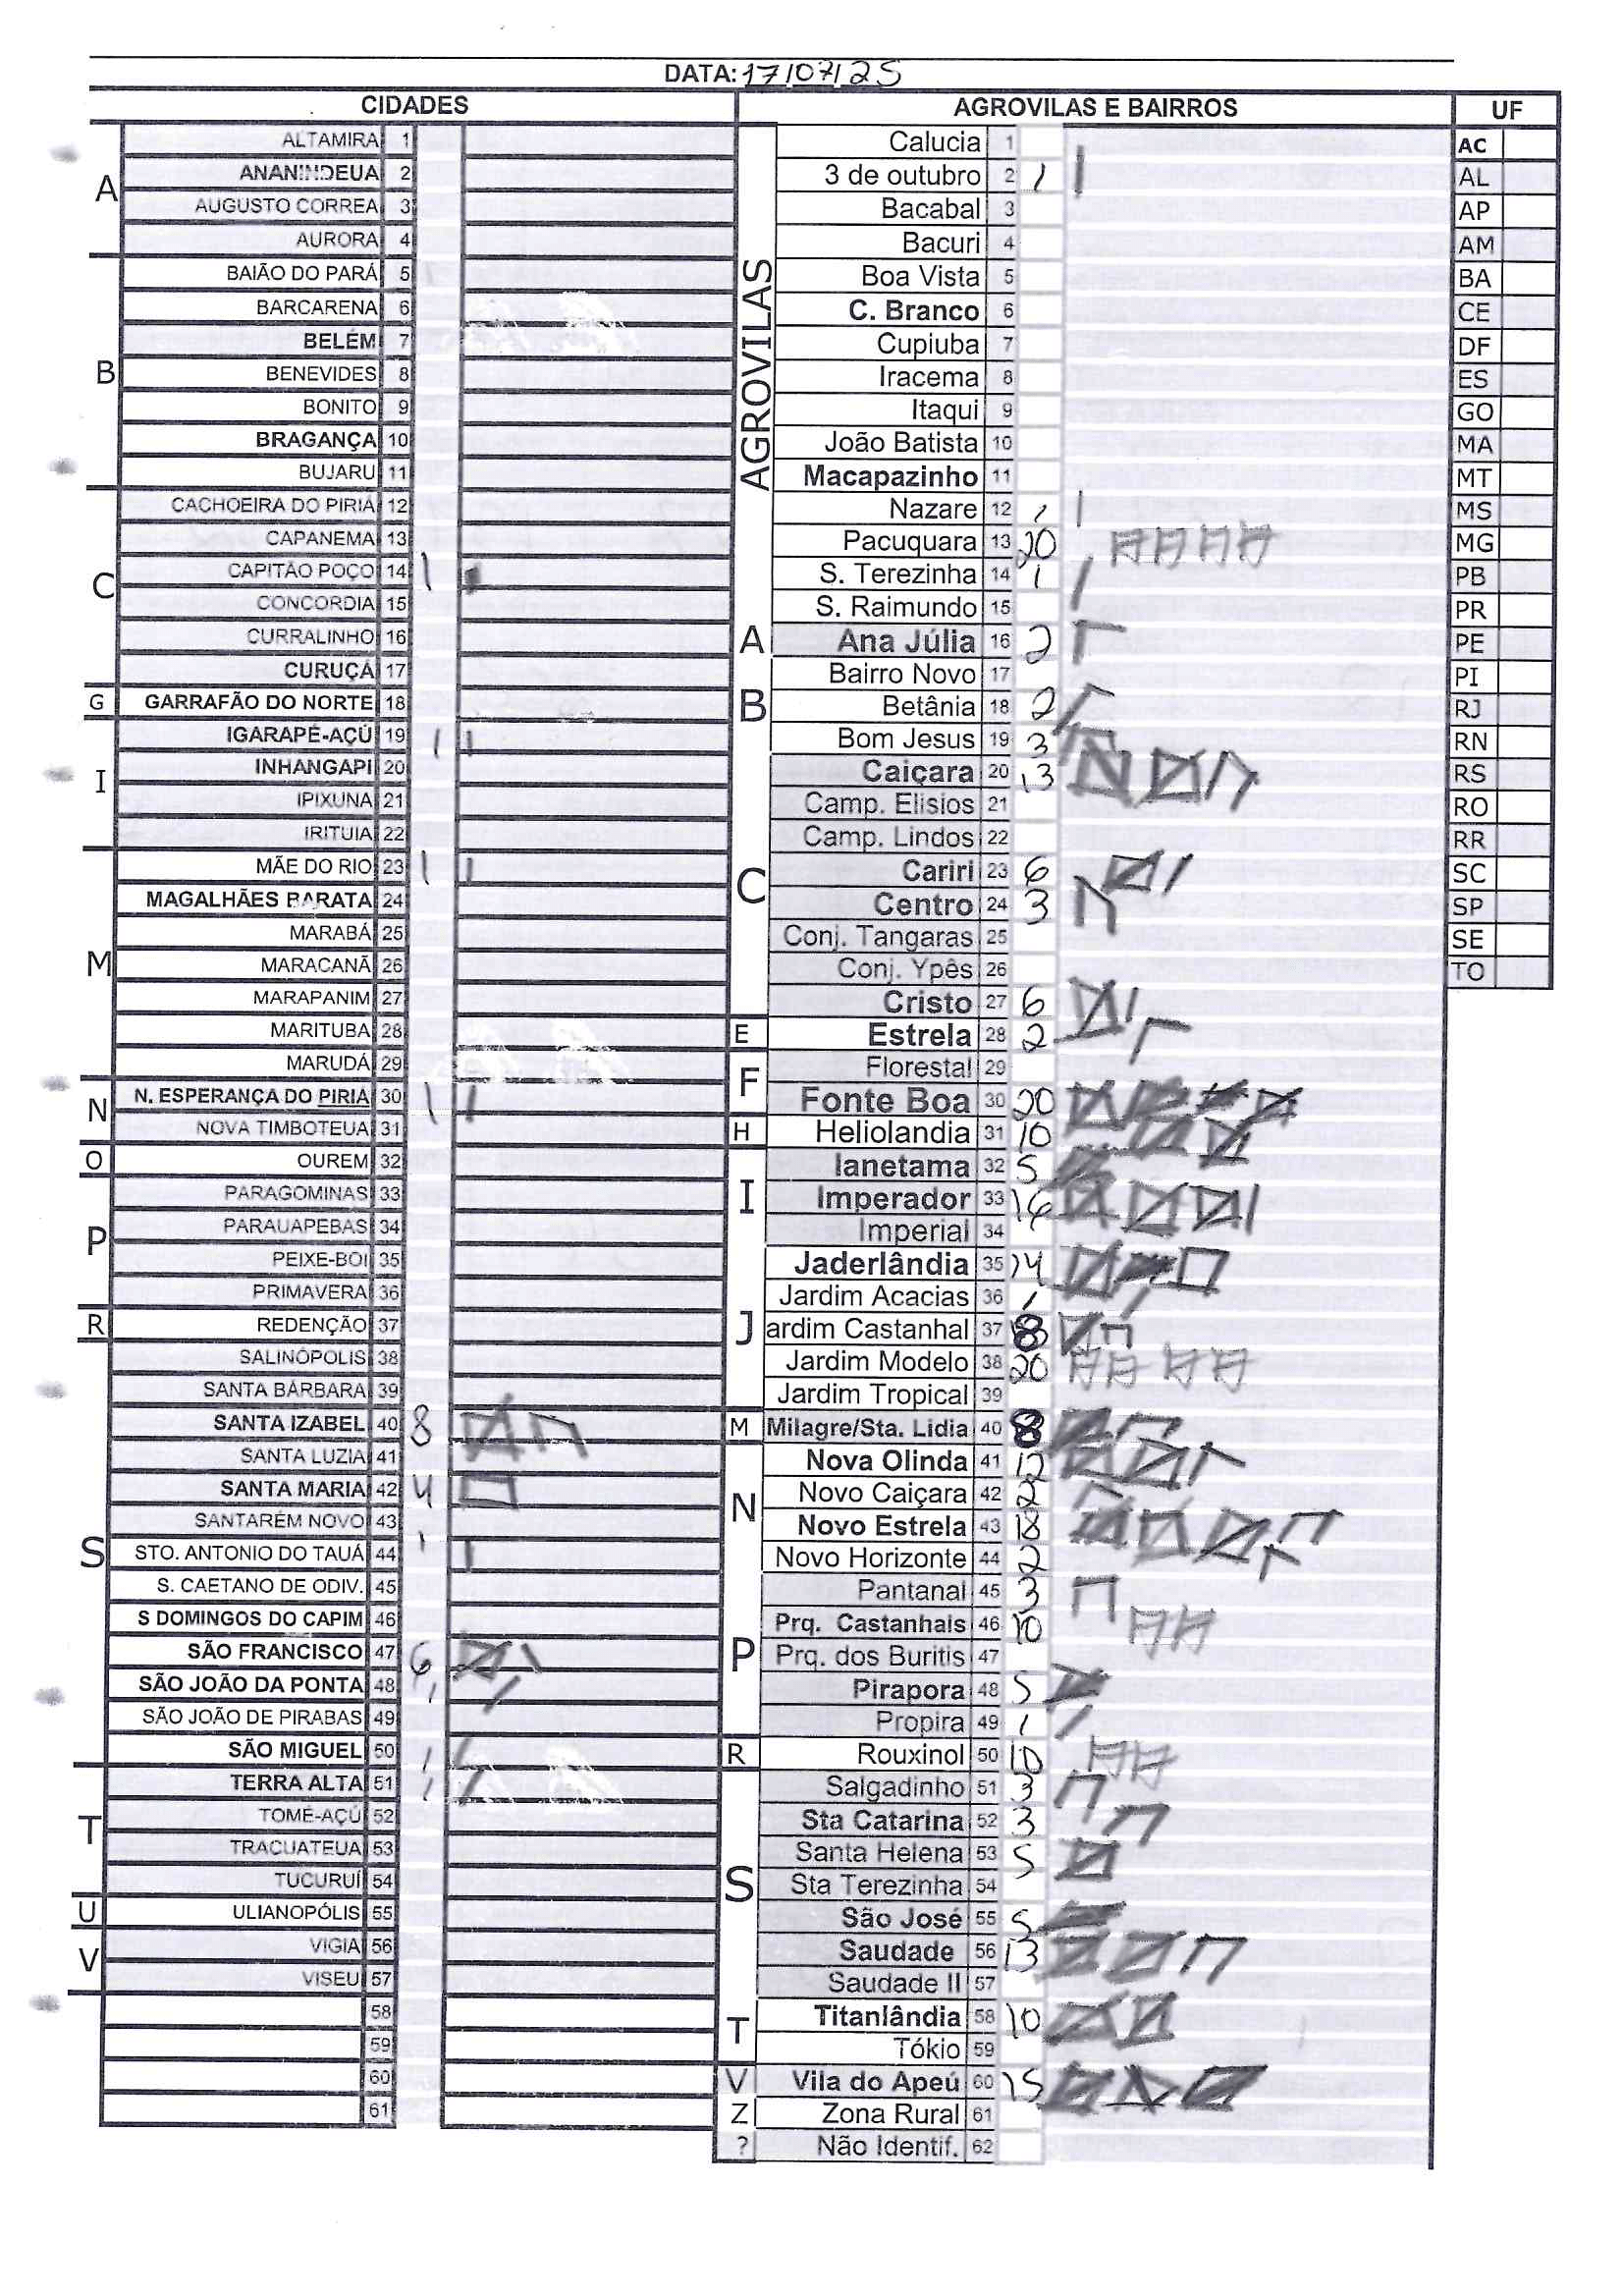 DATA: 17/07/25
CIDADES
A
ALTAMIRA 1
ANANINDEUA 2
AUGUSTO CORREA 3
AURORA 4
B
BAIÃO DO PARÁ 5
BARCARENA 6
BELÉM 7
BENEVIDES 8
BONITO 9
BRAGANÇA 10
BUJARU 11
C
CACHOEIRA DO PIRIÁ 12
CAPANEMA 13
CAPITÃO POÇO 14 1
CONCORDIA 15
CURRALINHO 16
CURUÇÁ 17
G
GARRAFÃO DO NORTE 18
I
IGARAPÉ-AÇÚ 19 1
INHANGAPI 20
IPIXUNA 21
IRITUIA 22
M
MÃE DO RIO 23 1
MAGALHÃES BARATA 24
MARABÁ 25
MARACANÃ 26
MARAPANIM 27
MARITUBA 28
MARUDÁ 29
N
N. ESPERANÇA DO PIRIA 30 1
NOVA TIMBOTEUA 31
O
OUREM 32
P
PARAGOMINAS 33
PARAUAPEBAS 34
PEIXE-BOI 35
PRIMAVERA 36
R
REDENÇÃO 37
S
SALINÓPOLIS 38
SANTA BÁRBARA 39
SANTA IZABEL 40 8
SANTA LUZIA 41
SANTA MARIA 42 4
SANTARÉM NOVO 43
STO. ANTONIO DO TAUÁ 44 1
S. CAETANO DE ODIV. 45
S DOMINGOS DO CAPIM 46
SÃO FRANCISCO 47 6
SÃO JOÃO DA PONTA 48 1
SÃO JOÃO DE PIRABAS 49
SÃO MIGUEL 50 1
T
TERRA ALTA 51 1
TOMÉ-AÇÚ 52
TRACUATEUA 53
TUCURUÍ 54
U
ULIANOPÓLIS 55
V
VIGIA 56
VISEU 57
58
59
60
61
AGROVILAS E BAIRROS
AGROVILAS
Calucia 1
3 de outubro 2 1
Bacabal 3
Bacuri 4
Boa Vista 5
C. Branco 6
Cupiuba 7
Iracema 8
Itaqui 9
João Batista 10
Macapazinho 11
Nazare 12 1
Pacuquara 13 20
S. Terezinha 14 1
S. Raimundo 15
A
Ana Júlia 16 2
B
Bairro Novo 17
Betânia 18 2
Bom Jesus 19 3
C
Caiçara 20 13
Camp. Elisios 21
Camp. Lindos 22
Cariri 23 6
Centro 24 3
Conj. Tangaras 25
Conj. Ypês 26
Cristo 27 6
E
Estrela 28 2
F
Florestal 29
Fonte Boa 30 20
H
Heliolandia 31 10
I
Ianetama 32 5
Imperador 33 16
Imperial 34
J
Jaderlândia 35 14
Jardim Acacias 36 1
ardim Castanhal 37 8
Jardim Modelo 38 20
Jardim Tropical 39
M
Milagre/Sta. Lidia 40 8
N
Nova Olinda 41 12
Novo Caiçara 42 2
Novo Estrela 43 18
Novo Horizonte 44 2
P
Pantanal 45 3
Prq. Castanhais 46 10
Prq. dos Buritis 47
Pirapora 48 5
Propira 49 1
R
Rouxinol 50 10
S
Salgadinho 51 3
Sta Catarina 52 3
Santa Helena 53 5
Sta Terezinha 54
São José 55 5
Saudade 56 13
Saudade II 57
T
Titanlândia 58 10
Tókio 59
V
Vila do Apeú 60 15
Z
Zona Rural 61
?
Não Identif. 62
UF
AC
AL
AP
AM
BA
CE
DF
ES
GO
MA
MT
MS
MG
PB
PR
PE
PI
RJ
RN
RS
RO
RR
SC
SP
SE
TO